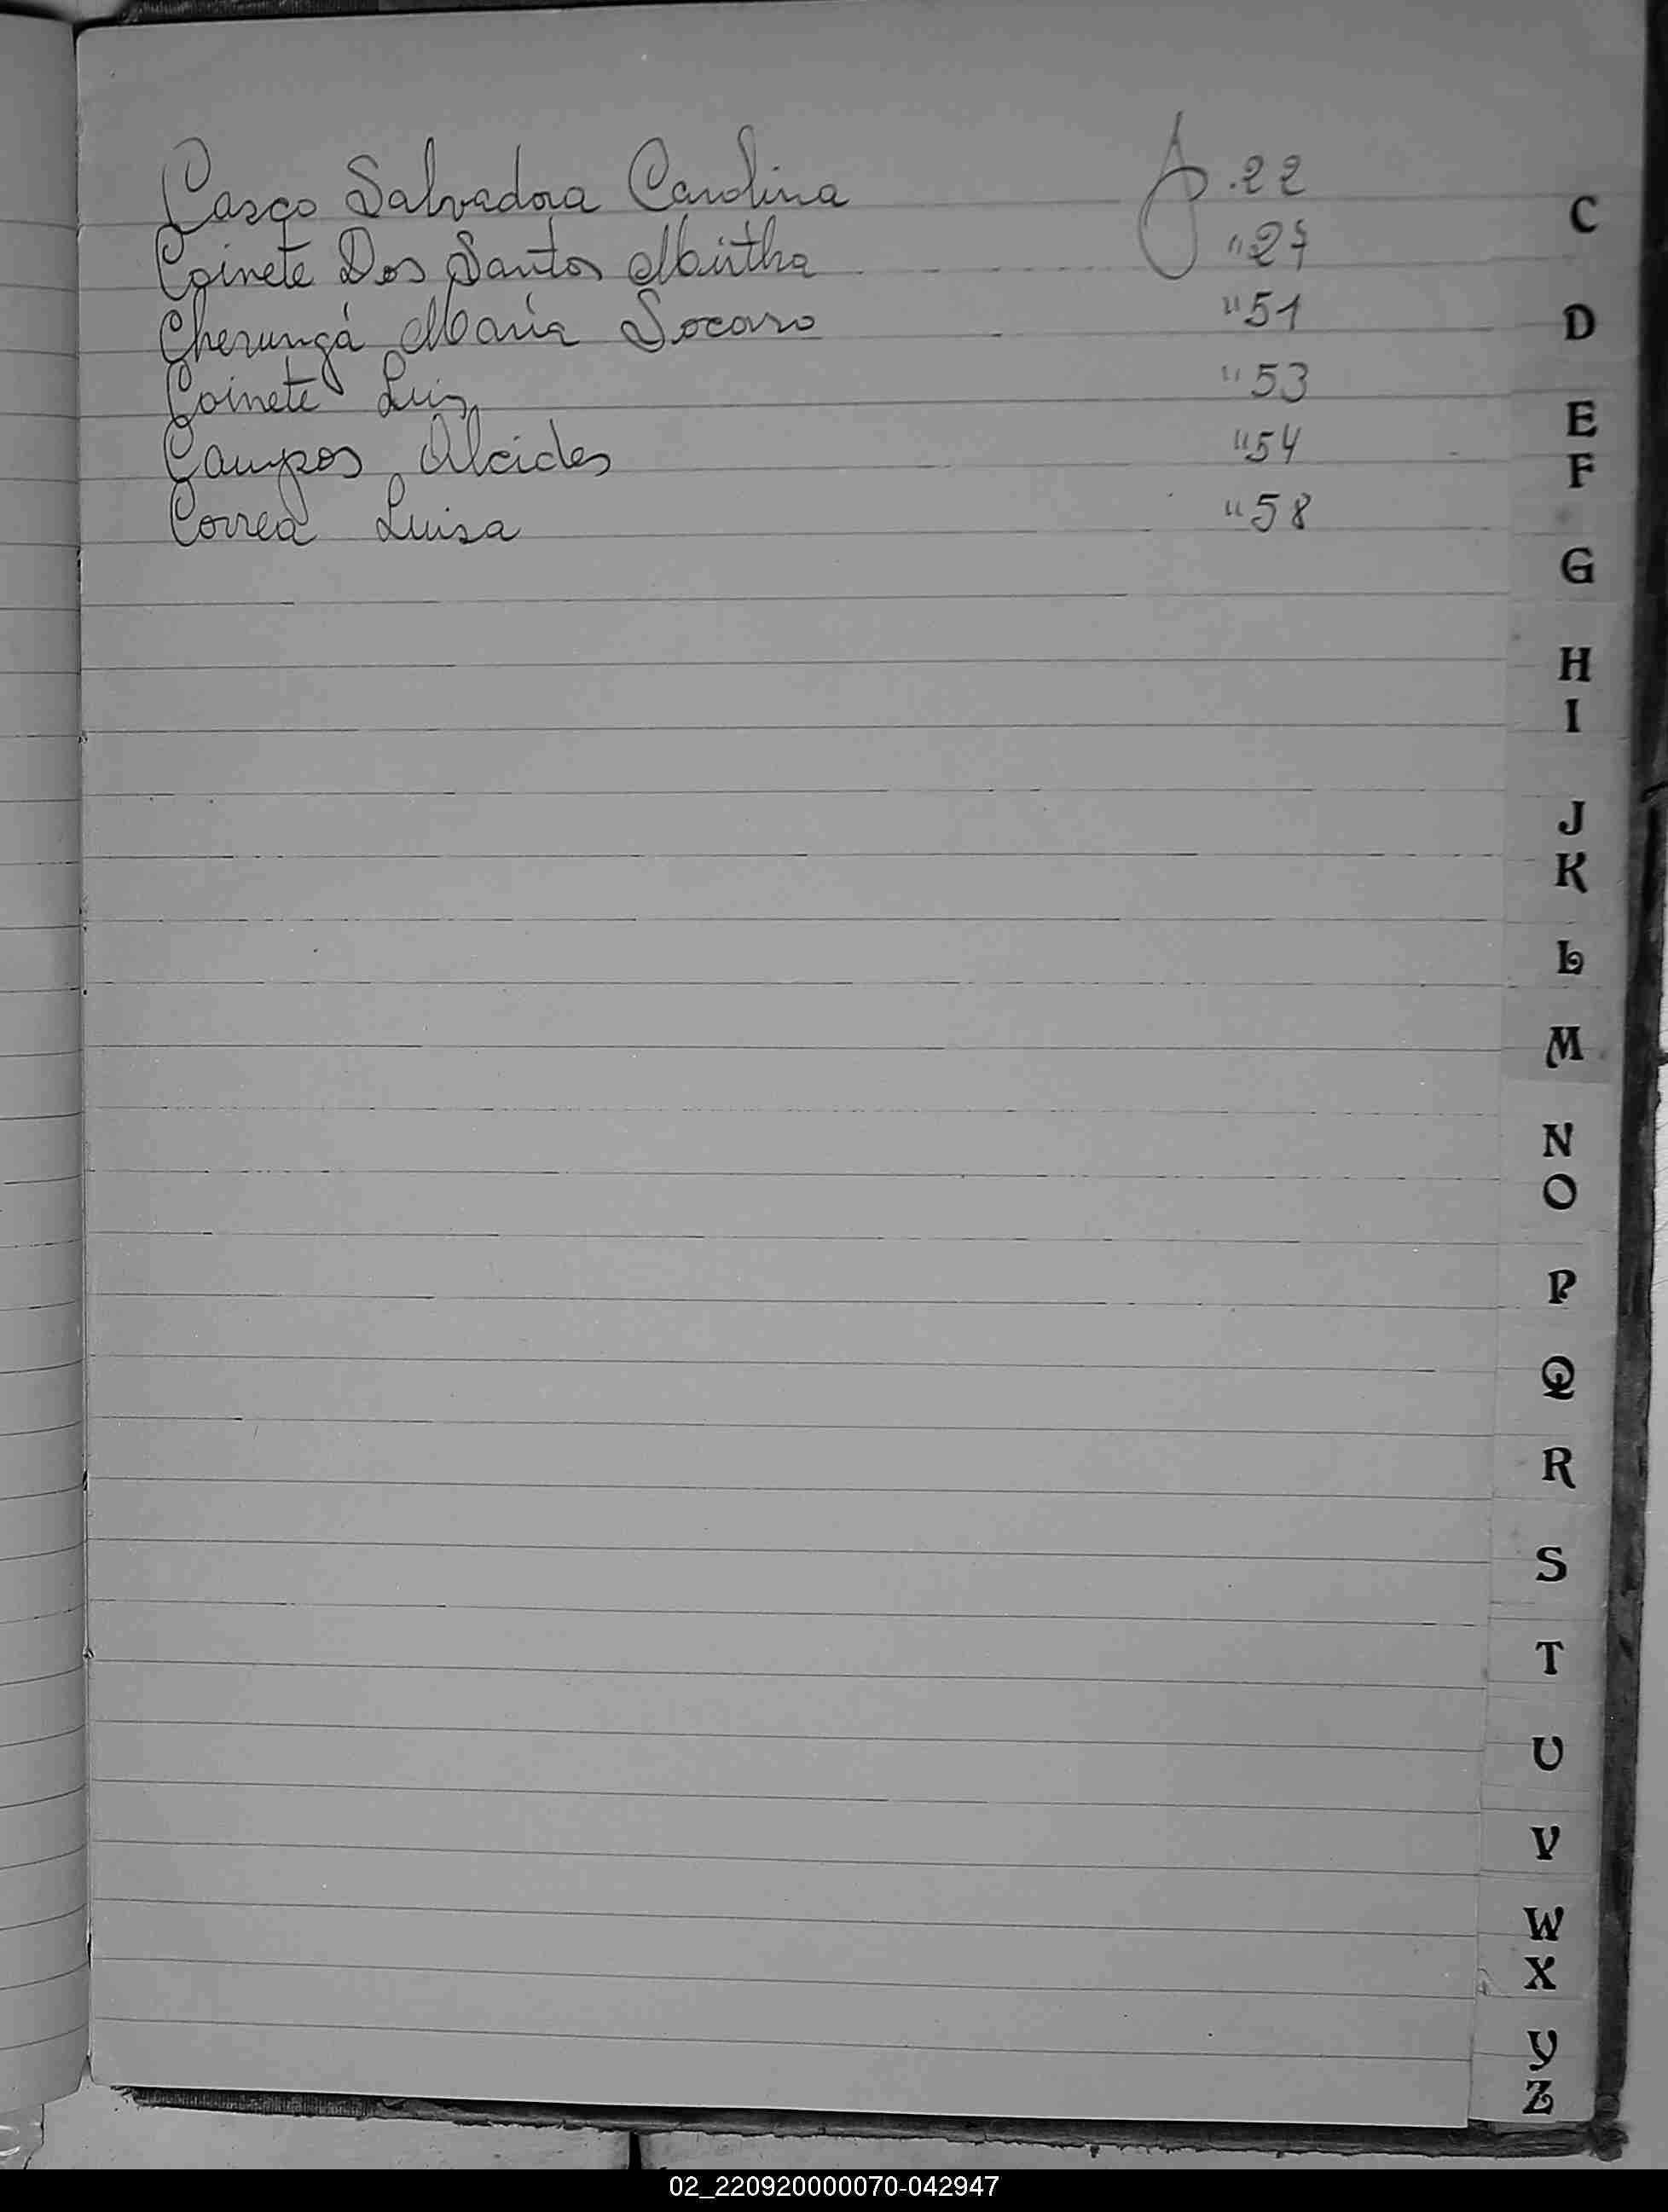 Casco Salvadora Carolina f.22
Coinete Dos Santos Mirtha "27
Cherungá María Socorro "51
Coinete Luis "53
Campos Alcides "54
Correa Luisa "58
C
D
E
F
G
H
I
J
K
L
M
N
O
P
Q
R
S
T
U
V
W
X
Y
Z
02_220920000070-042947